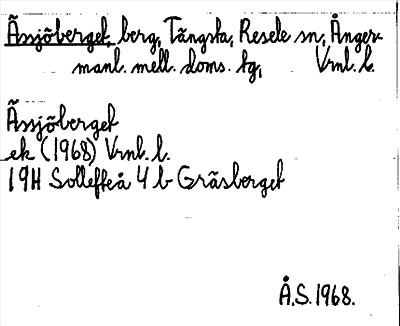 Ässjöberget, berg, Tängsta, Resele sn, Ånger-
manl. mell. doms. tg, Vrnl. l.
Ässjöberget
ek (1968) Vrnl. l.
19H Sollefteå 4 b Gräsberget
Å.S. 1968.